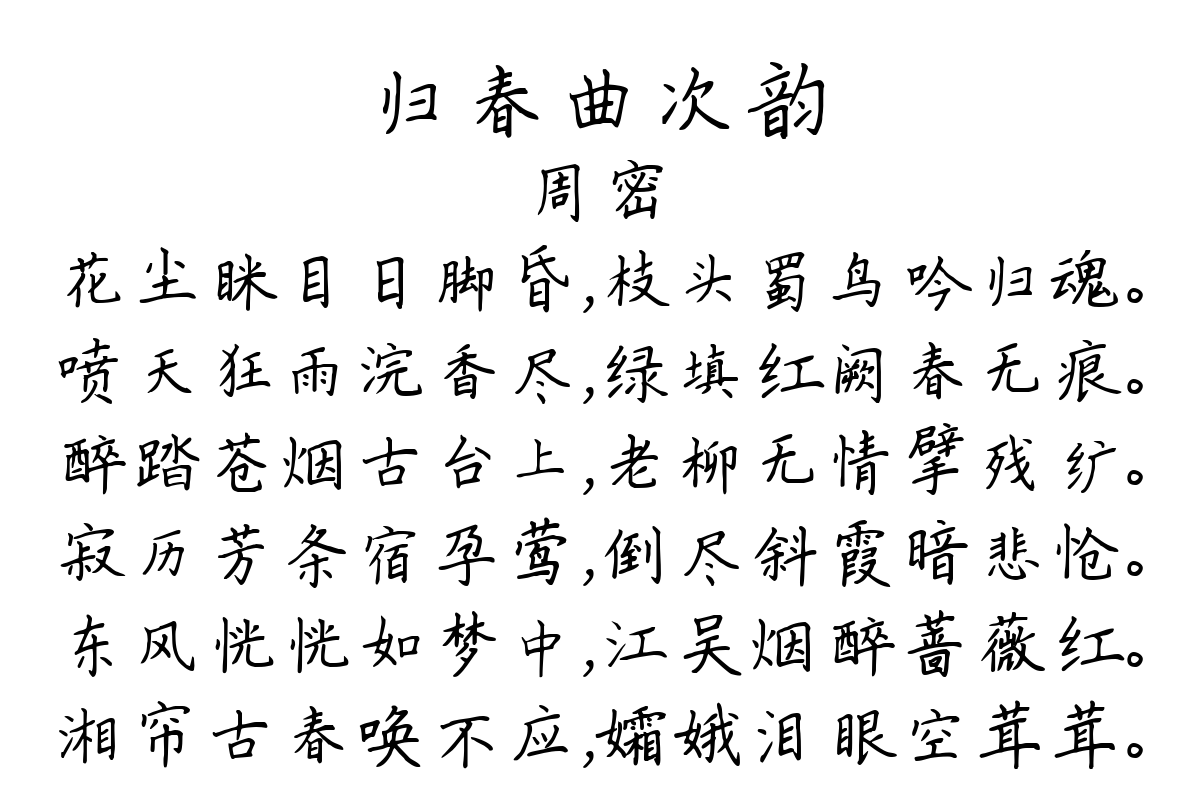 归春曲次韵
周密
花尘眯目日脚昏,枝头蜀鸟吟归魂。
喷天狂雨浣香尽,绿填红阙春无痕。
醉踏苍烟古台上,老柳无情擘残纩。
寂历芳条宿孕莺,倒尽斜霞暗悲怆。
东风恍恍如梦中,江吴烟醉蔷薇红。
湘帘古春唤不应,孀娥泪眼空茸茸。